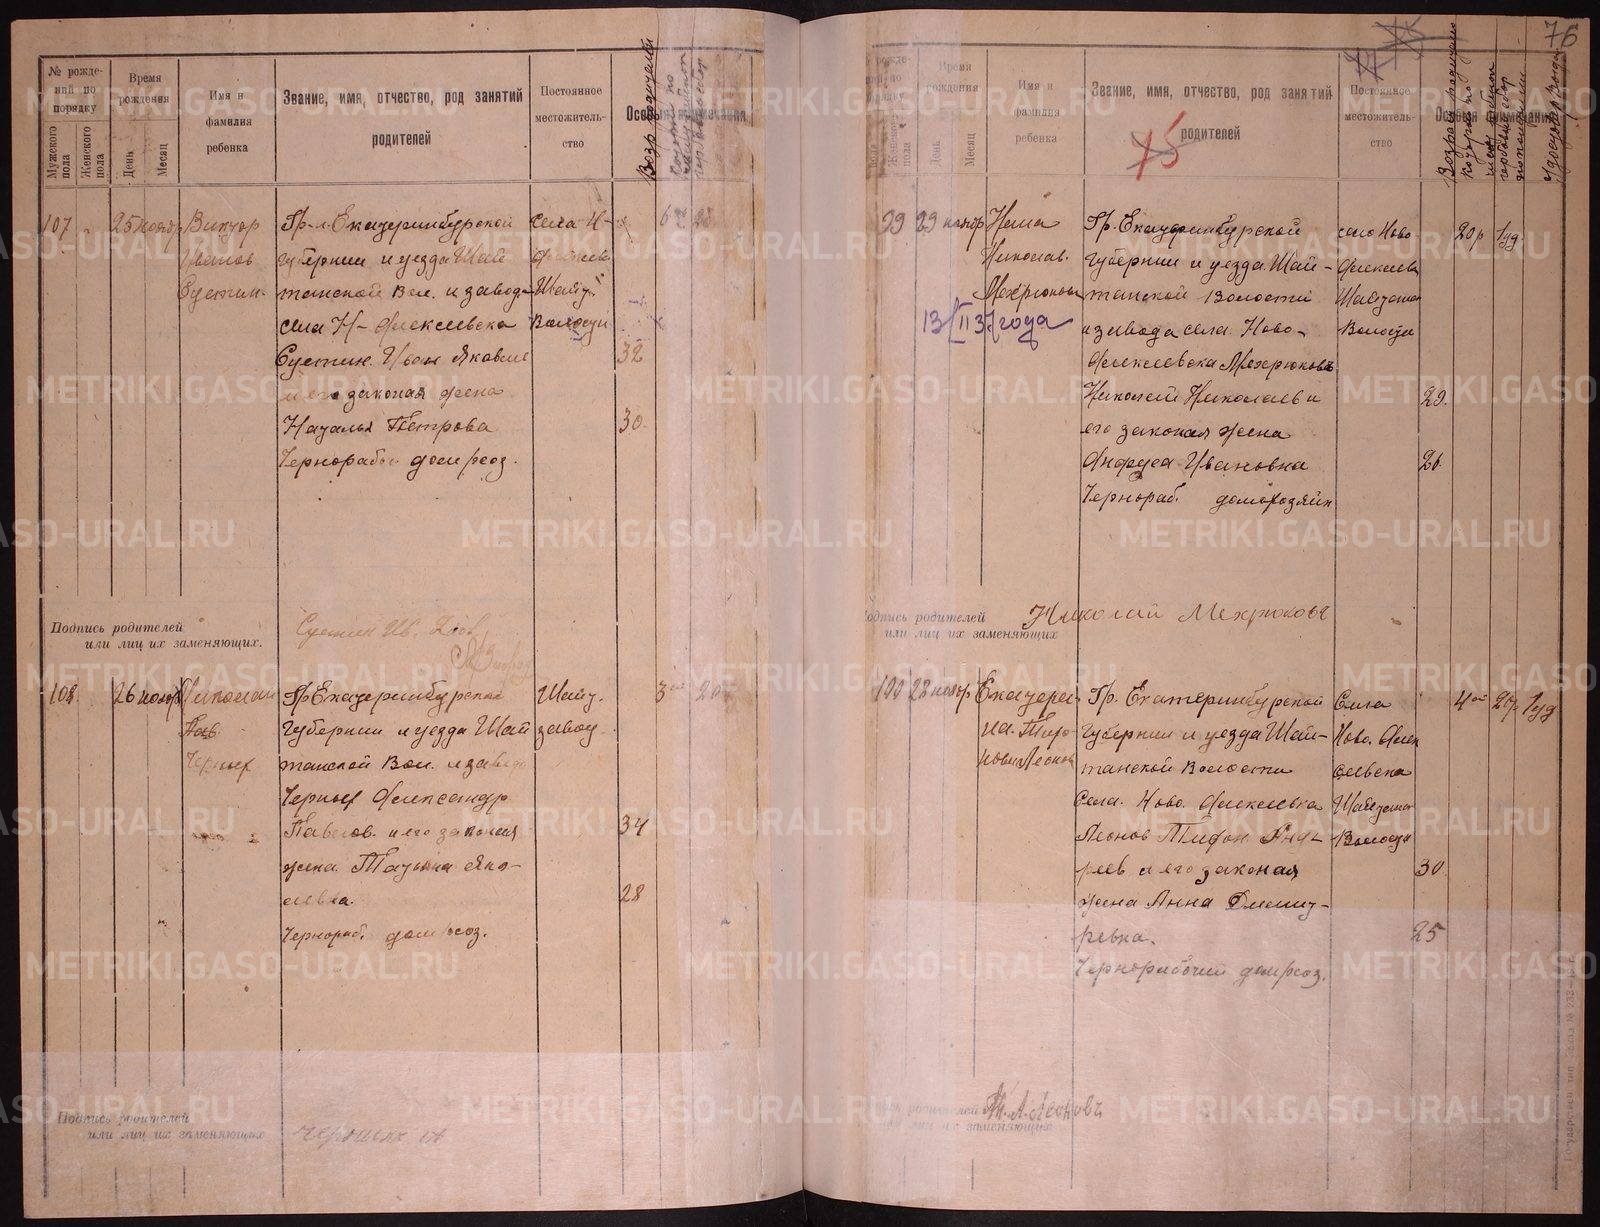 № рожде-
ний по
порядку
Мужского
пола
Женского
пола
Время
рождения
День
Месяц
Имя и
фамилия
ребенка
Звание, имя, отчество, род занятий
родителей
Постоянное
местожитель-
ство
107
25 ноябр
Виктор
Иванов
Сустин.
Гр-н Екатеринбурской
Губернии и уезда Шай
танской Вол. и завода
села Н-Алексеевска
Сустин Иван Яковлев
и его законая жена
Наталья Петрова
Чернорабо домхоз.
села Н-
Алексеев
Шайт.
Волости
32
30.
6
Подпись родителей
или лиц их заменяющих.
Сустин Ив.
108
26 ноябр
Пав.
Черных
Гр Екатеринбурской
Губернии и уезда Шай
танской Вол. и завода
Черных Александр
Павелов. и его законая
жена Татьяна Яко-
левна.
Чернораб. домхоз.
Шайт.
завод
34
28
3
Подпись родителей
или лиц их заменяющих
76
Время
рождения
День
Месяц
Имя и
фамилия
ребенка
Звание, имя, отчество, род занятий
75 родителей
Постоянное
местожитель-
ство
99
29 ноябр
Николав.
Мехрюков
13/II 37 года
Гр. Екатеринбурской
Губернии и уезда Шай-
танской Волости
и завода села Ново-
Алексеевска Мехрюковъ
Николай Николаев и
его законая жена
Анфуса Ивановна
Чернораб. домохозяйк
село Ново
Алексеевк
Шайтанск
Волости
29.
26.
20р 1уд
Подпись родителей
или лиц их заменяющих
Николай Мехрюковъ
100
28 ноябр
Екатери
на Тифо
нова Леонов
Гр. Екатеринбурской
Губернии и уезда Шай-
танской Волости
села Ново Алексеевка
Леонов Тифон Анд-
реев и его законая
жена Анна Дмит-
ревна.
Чернорабочий домхоз.
Села
Ново. Алек
сеевска
Шайтанск
Волости
30
25
4ой 20р 1уд
родителей
или лиц их заменяющих
Т. А. Леоновъ
METRIKI.GASO-URAL.RU